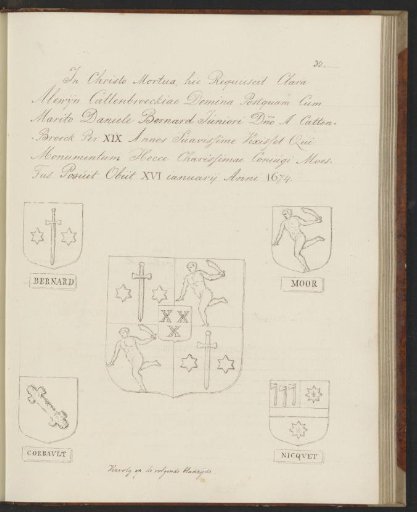 30.
In Christo Mortua hic Requiescit Clara
Alewÿn Cattenbroeckiae Domina Postquam Cum
Marito Daniele Bernard Juniore Dno A Catten-
Broeck Per XIX Annos Suavissime Vixisset Qui
Monumentum Hocce Charissimae Conjugi Moes-
Tus Posuit Obiit XVI ianuarij Anno 1674.
BERNARD
MOOR
CORBAULT
NICQUET
Vervolg op de volgende bladzijde